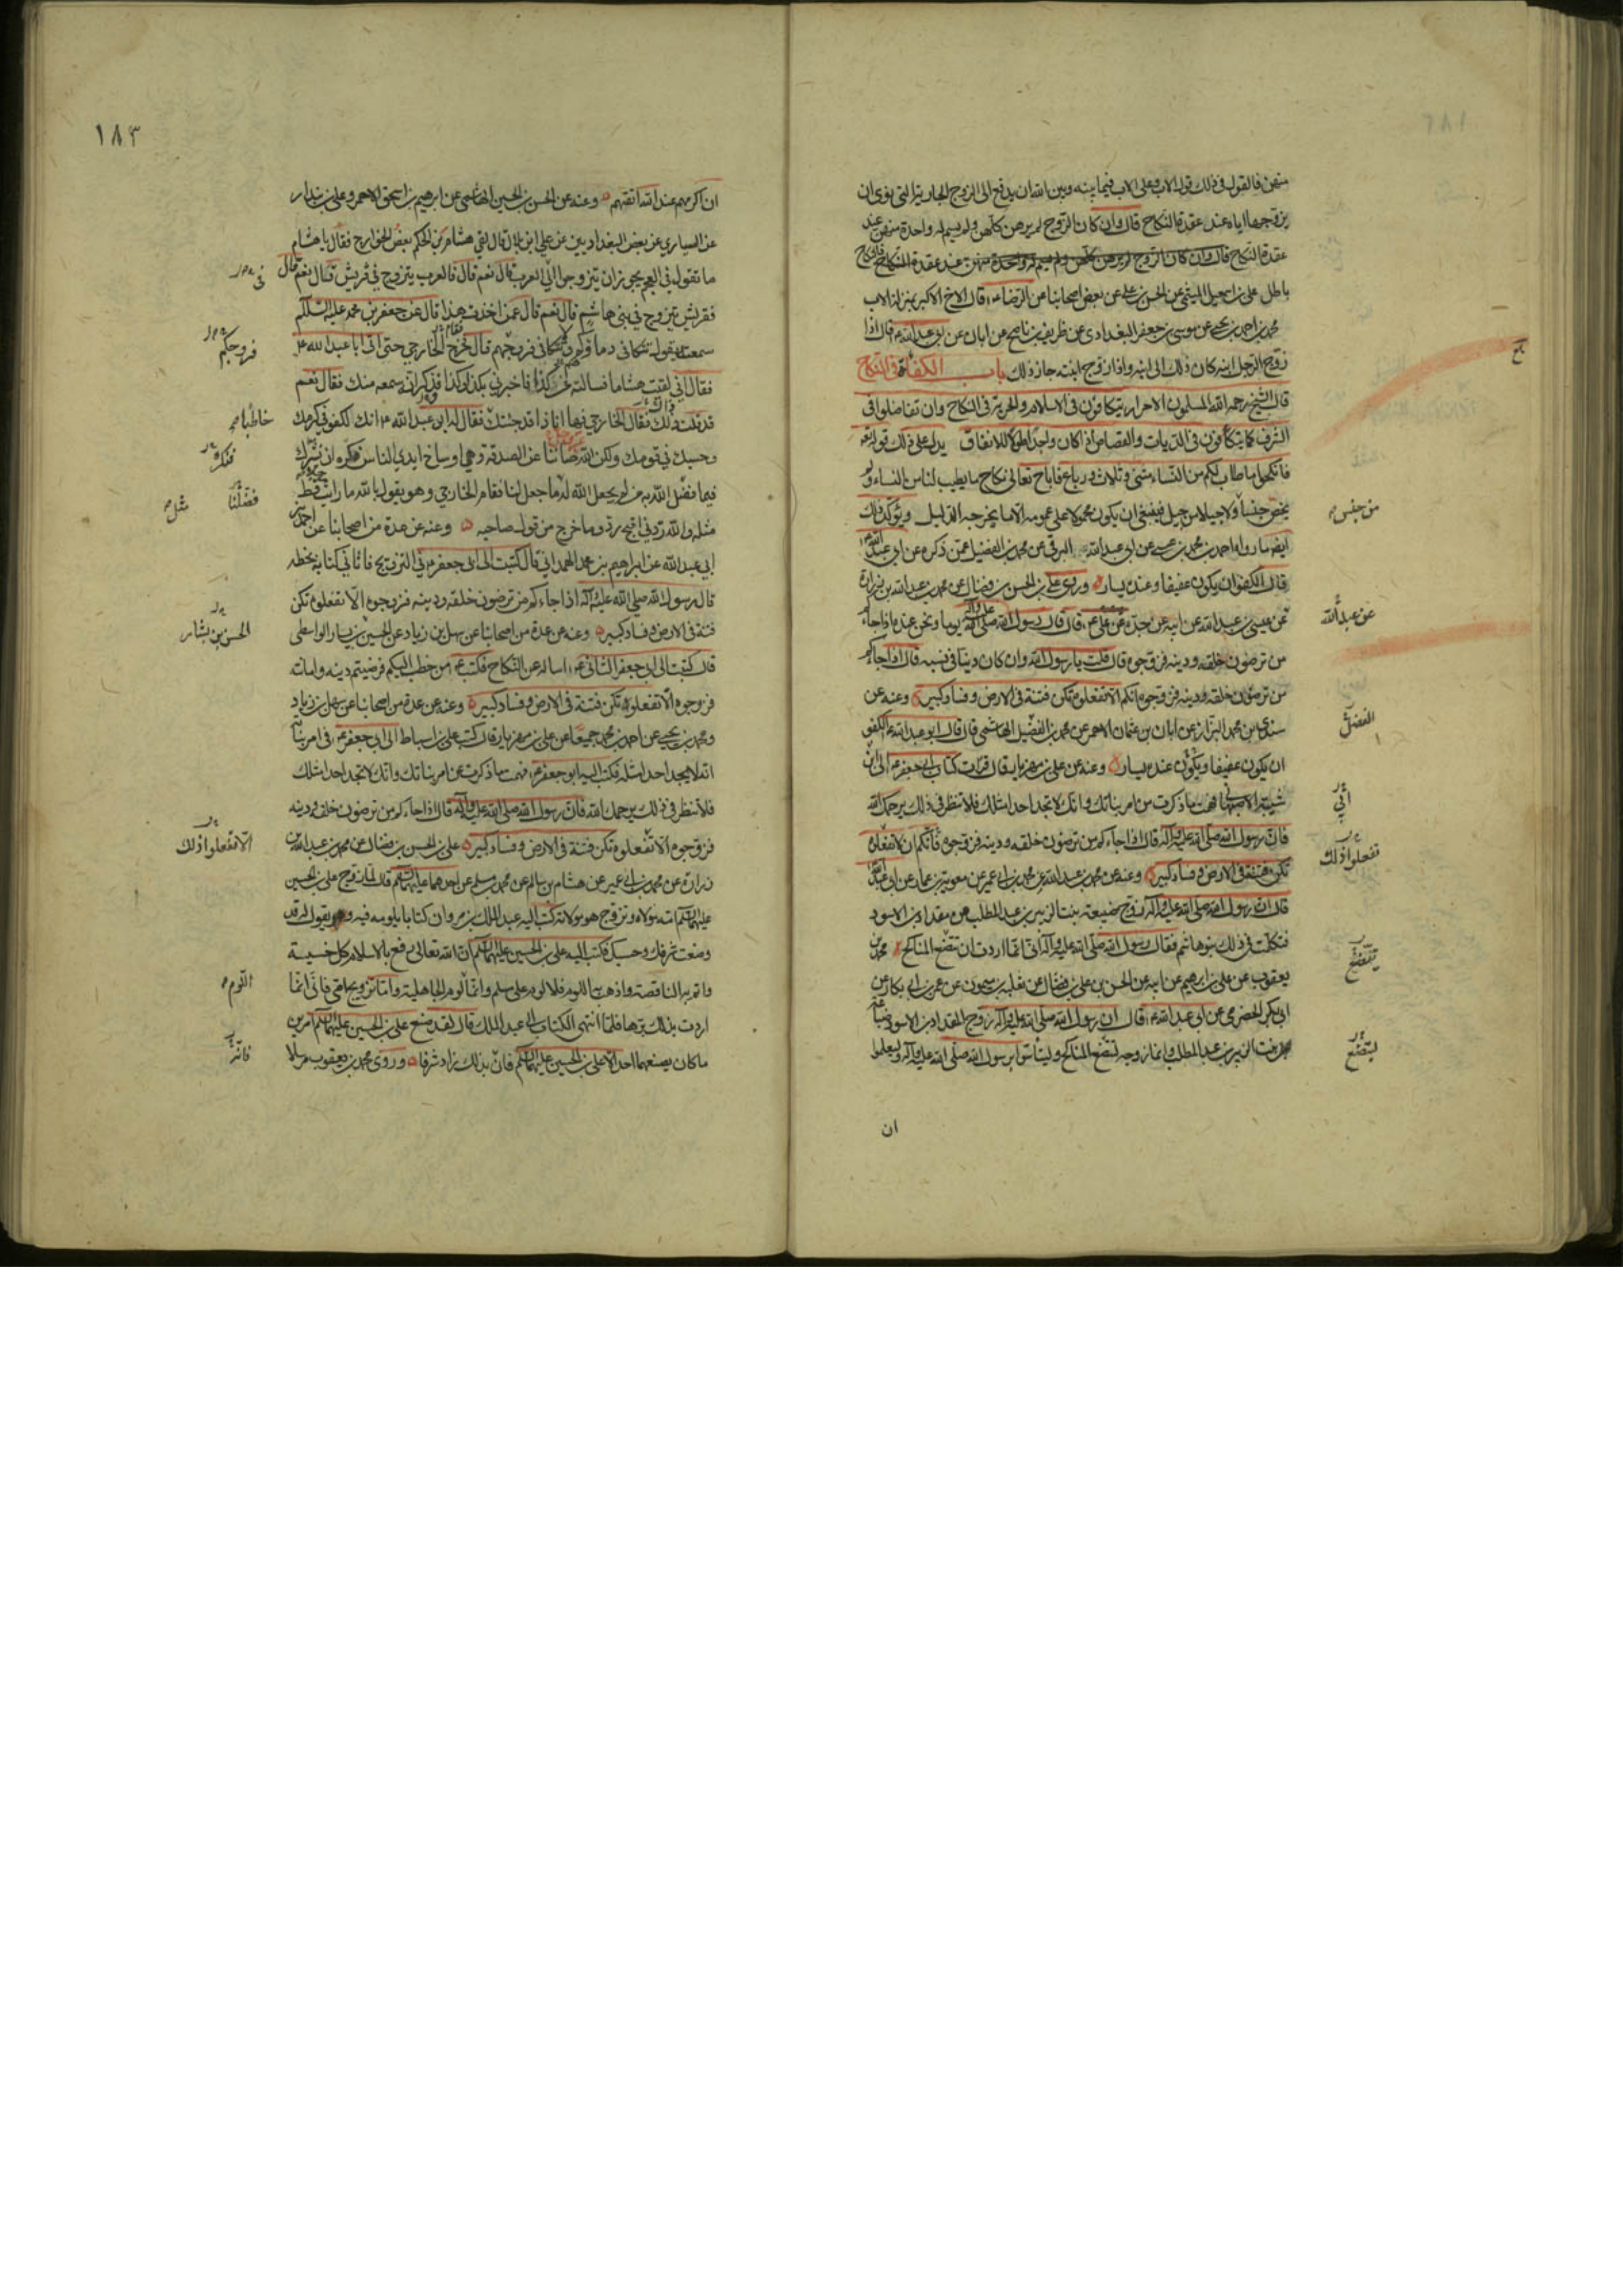 منهن فالقول في ذلك قول الاب وعلى الاب فيما بينه وبين الله ان يدفع الى الزوج الجارية التي نوى ان
يزوجها اياه عند عقدة النكاح قال وان كان الزوج لم يرهن كلهن ولم يسم له واحدة منهن عند
عقدة النكاح فالنكاح
باطل علي بن اسمعيل الميثمي عن الحسن بن علي عن بعض اصحابنا عن الرضا ع قال الاخ الاكبر بمنزلة الاب
محمد بن احمد بن يحيى عن موسى بن جعفر البغدادي عن ظريف بن ناصح عن ابان عن ابي عبد الله ع قال اذا
زوج الرجل ابنه كان ذلك الى ابنه واذا زوج ابنته جاز ذلك باب الكفاءة في النكاح
قال الشيخ رحمه الله المسلمون الاحرار يتكافؤن في الاسلام والحرية في النكاح وان تفاضلوا في
الشرف كما يتكافؤن في الديات والقصاص اذا كان واجدا طولا للانفاق يدل على ذلك قوله تعالى
فانكحوا ما طاب لكم من النساء مثنى وثلاث ورباع فاباح تعالى نكاح ما يطيب لنا من النساء ولم
يخص جنسا ولا جيلا من جيل فينبغي ان يكون محمولا على عمومه الا ما يخرجه الدليل ويؤكد ذلك
من جنس
ايضا ما رواه احمد بن محمد بن عيسى عن ابي عبد الله البرقي عن محمد بن الفضيل عمن ذكره عن ابي عبد الله ع
قال الكفو ان يكون عفيفا وعنده يسار وروى علي بن الحسن بن فضال عن محمد بن عبد الله بن زرارة
عن عيسى بن عبد الله عن ابيه عن جده عن علي ع قال قال رسول الله صلى الله عليه وآله يوما ونحن عنده اذا جاءكم
عن عبد الله
من ترضون خلقه ودينه فزوجوه قال قلت يا رسول الله وان كان دنيا في نسبه قال اذا جاءكم
من ترضون خلقه ودينه فزوجوه انكم الا تفعلوه تكن فتنة في الارض وفساد كبير وعنه عن
سندي بن محمد البزاز عن ابان بن عثمان الاحمر عن محمد بن الفضيل الهاشمي قال قال ابو عبد الله ع الكفو
الفضل
ان يكون عفيفا ويكون عنده يسار وعنه عن علي بن مهزيار قال قرات كتاب ابي جعفر ع الى ابن
شيبة الاصبهاني فهمت ما ذكرت من امر بناتك وانك لا تجد احدا مثلك فلا تنظر في ذلك يرحمك الله
ابي
فان رسول الله صلى الله عليه وآله قال اذا جاءكم من ترضون خلقه ودينه فزوجوه فانكم ان لا تفعلوه
تفعلوا ذلك
تكن فتنة في الارض وفساد كبير وعنه عن محمد بن عبد الله عن محمد بن ابي عمير عن معوية بن عمار عن ابي عبد الله ع
قال ان رسول الله صلى الله عليه وآله زوج ضبيعة بنت الزبير بن عبد المطلب من مقداد بن الاسود
فتكلمت في ذلك بنو هاشم فقال رسول الله صلى الله عليه وآله اني انما اردت ان تتضع المناكح محمد بن
تتضع
يعقوب عن علي بن ابرهيم عن ابيه عن الحسن بن علي بن فضال عن ثعلبة بن ميمون عن عمر بن ابي بكار عن
ابي بكر الحضرمي عن ابي عبد الله ع قال ان رسول الله صلى الله عليه وآله زوج المقداد بن الاسود ضباعة
بنت الزبير بن عبد المطلب وانما زوجه لتضع المناكح وليتأسوا برسول الله صلى الله عليه وآله وليعلموا
لتتضع
ان
١٨٣
ان اكرمهم عند الله اتقيهم وعنه عن الحسن بن الحسين الهاشمي عن ابرهيم بن اسحق الاحمر وعلي بن بندار
عن السياري عن بعض البغداديين عن علي ابن بلال قال لقي هشام بن الحكم بعض الخوارج فقال يا هشام
ما تقول في العجم يجوز ان يتزوجوا الى العرب قال نعم قال فالعرب يتزوج في قريش قال نعم قال
فقريش يتزوج في بني هاشم قال نعم قال عمن اخذت هذا قال عن جعفر بن محمد عليه السلام
سمعته يقول تتكافى دماؤكم ولا تتكافى فروجهم قال فخرج الخارجي حتى اتى ابا عبد الله ع
فروجكم
فقال اني لقيت هشاما فسالته عن كذا فاخبرني بكذا وكذا فذكر انه سمعه منك فقال نعم
قد قلت ذلك فقال الخارجي فها انا ذا قد جئتك فقال له ابو عبد الله ع انك لكفو في كرمك
خاطبا
وحسبك في قومك ولكن الله عز وجل صاننا عن الصدقة وهي اوساخ ايدي الناس فكره ان نشرك
فنكره
فيما فضل الله به من لم يجعل الله له ما جعل لنا فقام الخارجي وهو يقول بالله ما رايت قط
فضلنا
مثل
مثله والله ردني اقبح رد وما خرج من قول صاحبه وعنه عن عدة من اصحابنا عن احمد بن
ابي عبد الله عن ابراهيم بن محمد الهمداني قال كتبت الى ابي جعفر ع في التزويج فاتاني كتابه بخطه
قال رسول الله صلى الله عليه وآله اذا جاءكم من ترضون خلقه ودينه فزوجوه الا تفعلوه تكن
فتنة في الارض وفساد كبير وعنه عن عدة من اصحابنا عن سهل بن زياد عن الحسين بن يسار الواسطي
الحسن بن بشار
قال كتبت الى ابي جعفر الثاني ع اساله عن النكاح فكتب ع من خطب اليكم فرضيتم دينه وامانته
فزوجوه الا تفعلوه تكن فتنة في الارض وفساد كبير وعنه عن عدة من اصحابنا عن سهل بن زياد
ومحمد بن يحيى عن احمد بن محمد جميعا عن علي بن مهزيار قال كتب علي بن اسباط الى ابي جعفر ع في امر بناته
انه لا يجد احدا مثله فكتب اليه ابو جعفر ع فهمت ما ذكرت من امر بناتك وانك لا تجد احدا مثلك
فلا تنظر في ذلك يرحمك الله فان رسول الله صلى الله عليه وآله قال اذا جاءكم من ترضون خلقه ودينه
فزوجوه الا تفعلوه تكن فتنة في الارض وفساد كبير علي بن الحسن بن فضال عن محمد بن عبد الله بن
الا تفعلوا ذلك
زرارة عن محمد بن ابي عمير عن هشام بن سالم عن محمد بن مسلم عن احدهما عليهما السلام قال لما زوج علي بن الحسين
عليهما السلام امه مولاه وتزوج هو مولاته كتب اليه عبد الملك بن مروان كتابا يلومه فيه ويقول له قد
وضعت شرفك وحسبك فكتب اليه علي بن الحسين عليهما السلام ان الله تعالى رفع بالاسلام كل خسيسة
واتم به الناقصة واذهب به اللوم فلا لوم على مسلم وانما اللوم لوم الجاهلية واما تزويج امي فاني انما
اللوم
اردت بذلك برها فلما انتهى الكتاب الى عبد الملك قال لقد صنع علي بن الحسين عليهما السلام امرين
ما كان يصنعهما احد الا علي بن الحسين عليهما السلام فان بذلك زاد شرفا وروى محمد بن يعقوب مرسلا
فانه